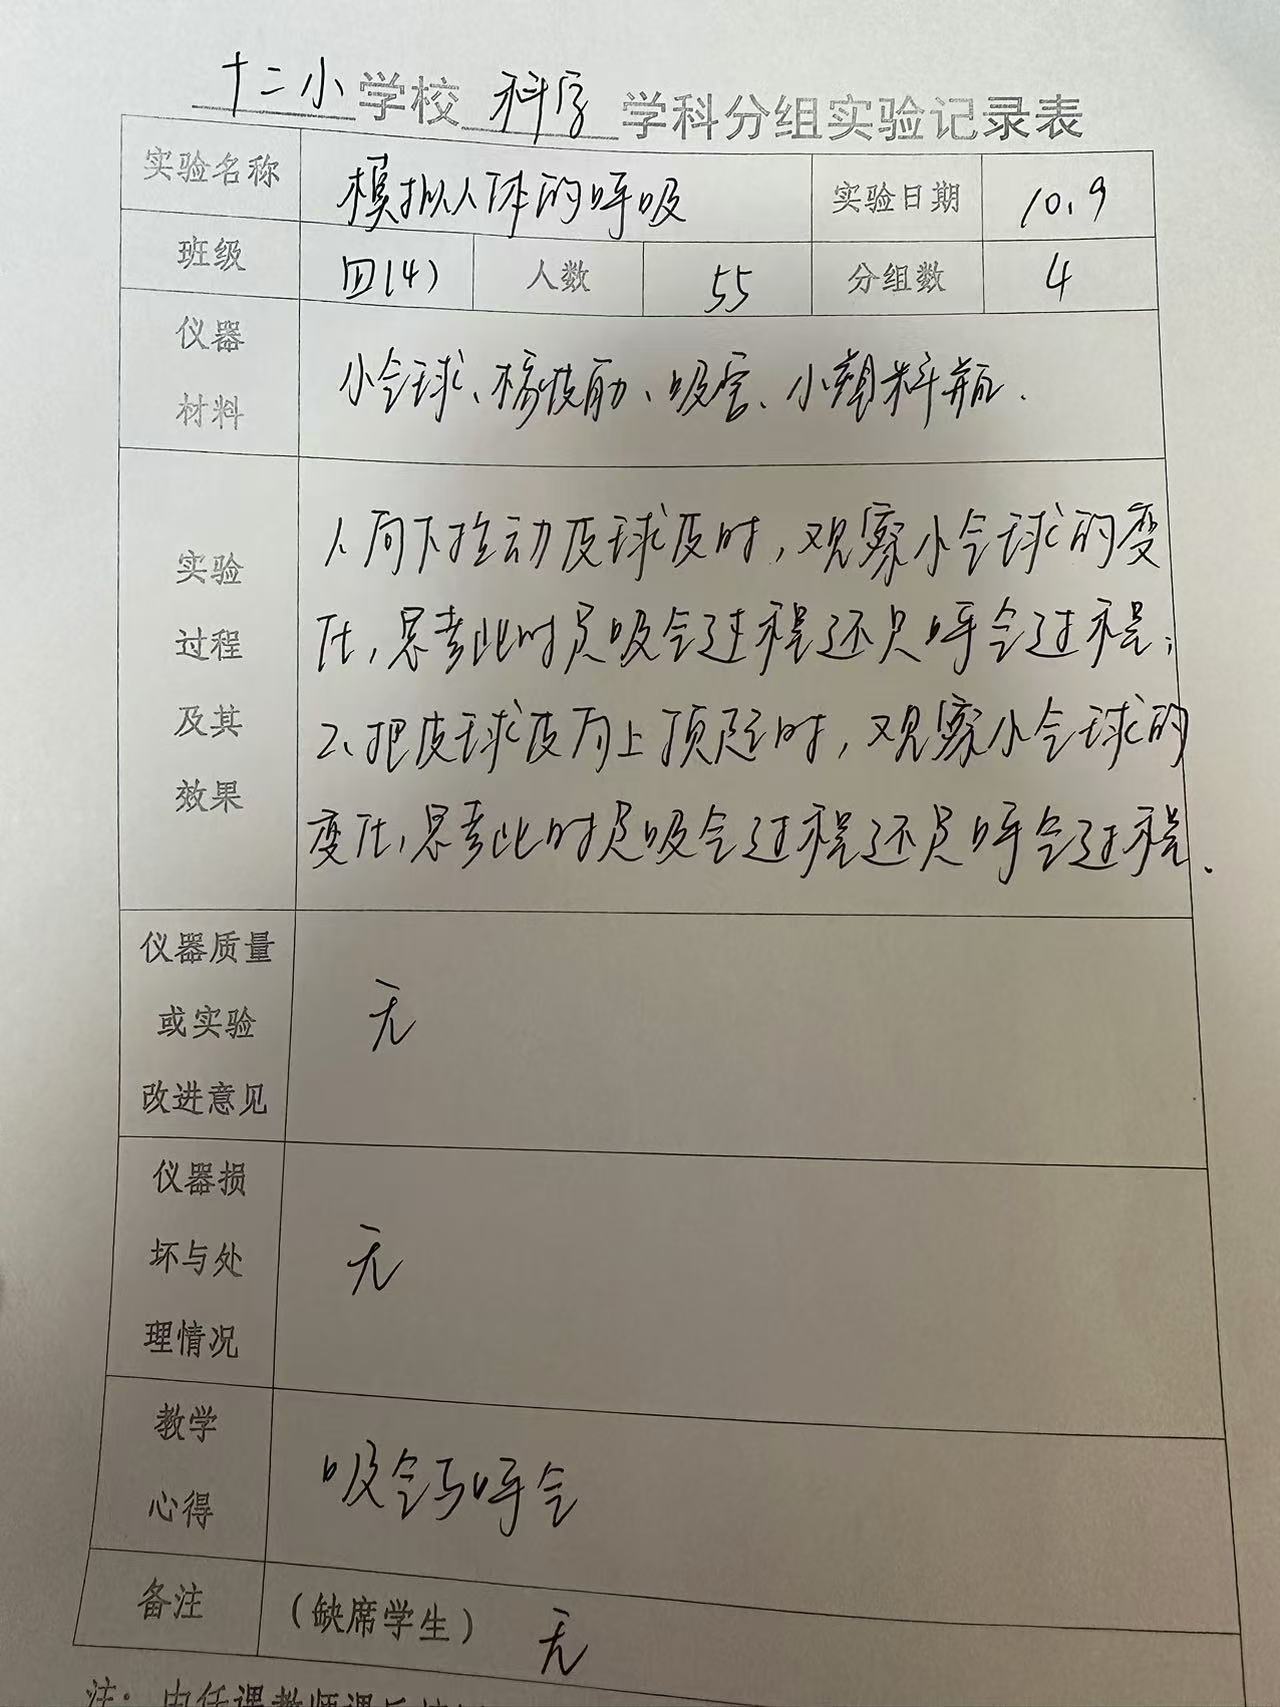 十二小学校 科学 学科分组实验记录表
实验名称 模拟人体的呼吸 实验日期 10.9
班级 四(4) 人数 55 分组数 4
仪器
材料
小气球、橡皮筋、吸管、小塑料瓶.
实验
过程
及其
效果
1、向下拉动皮球皮时,观察小气球的变
化,思考此时是吸气过程还是呼气过程;
2、把皮球皮向上顶起时,观察小气球的
变化,思考此时是吸气过程还是呼气过程.
仪器质量
或实验
改进意见
无
仪器损
坏与处
理情况
无
教学
心得
吸气与呼气
备注 (缺席学生) 无
注:由任课教师课后